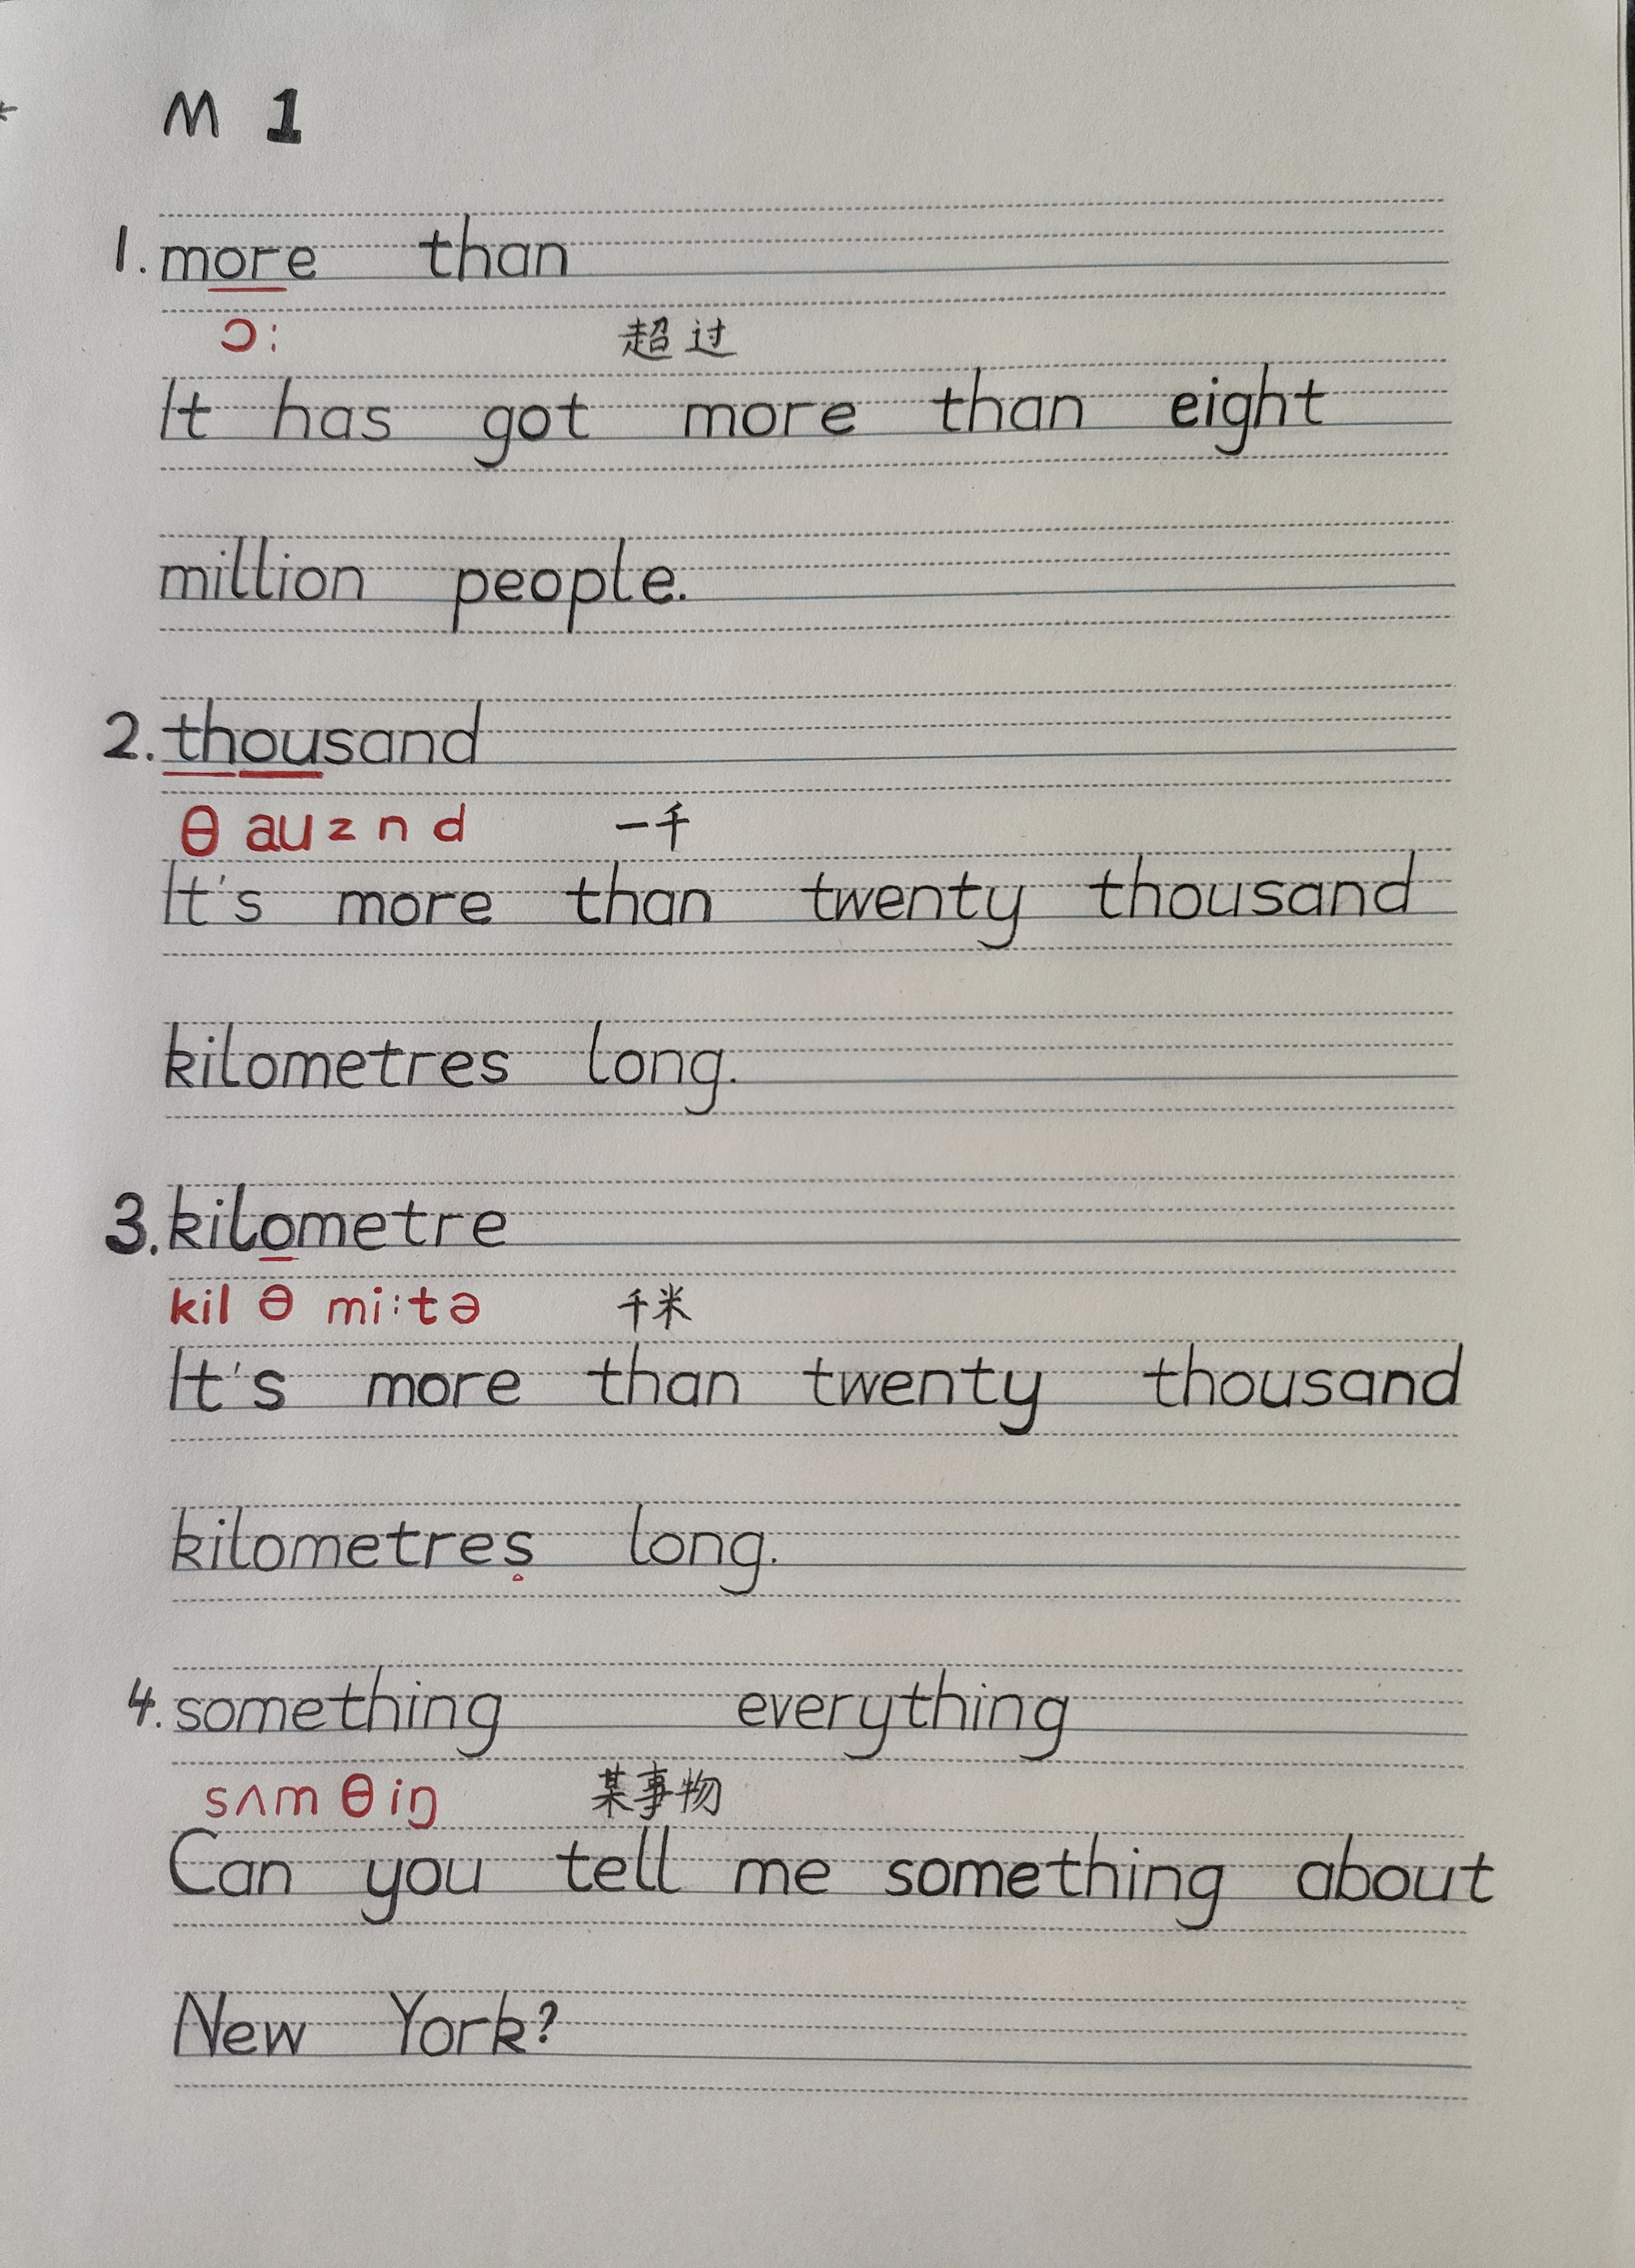 M 1
1. more than
ɔ: 超过
It has got more than eight
million people.
2. thousand
θ au z n d 一千
It's more than twenty thousand
kilometres long.
3. kilometre
kil ə mi:tə 千米
It's more than twenty thousand
kilometres long.
4. something everything
sʌm θ iŋ 某事物
Can you tell me something about
New York?